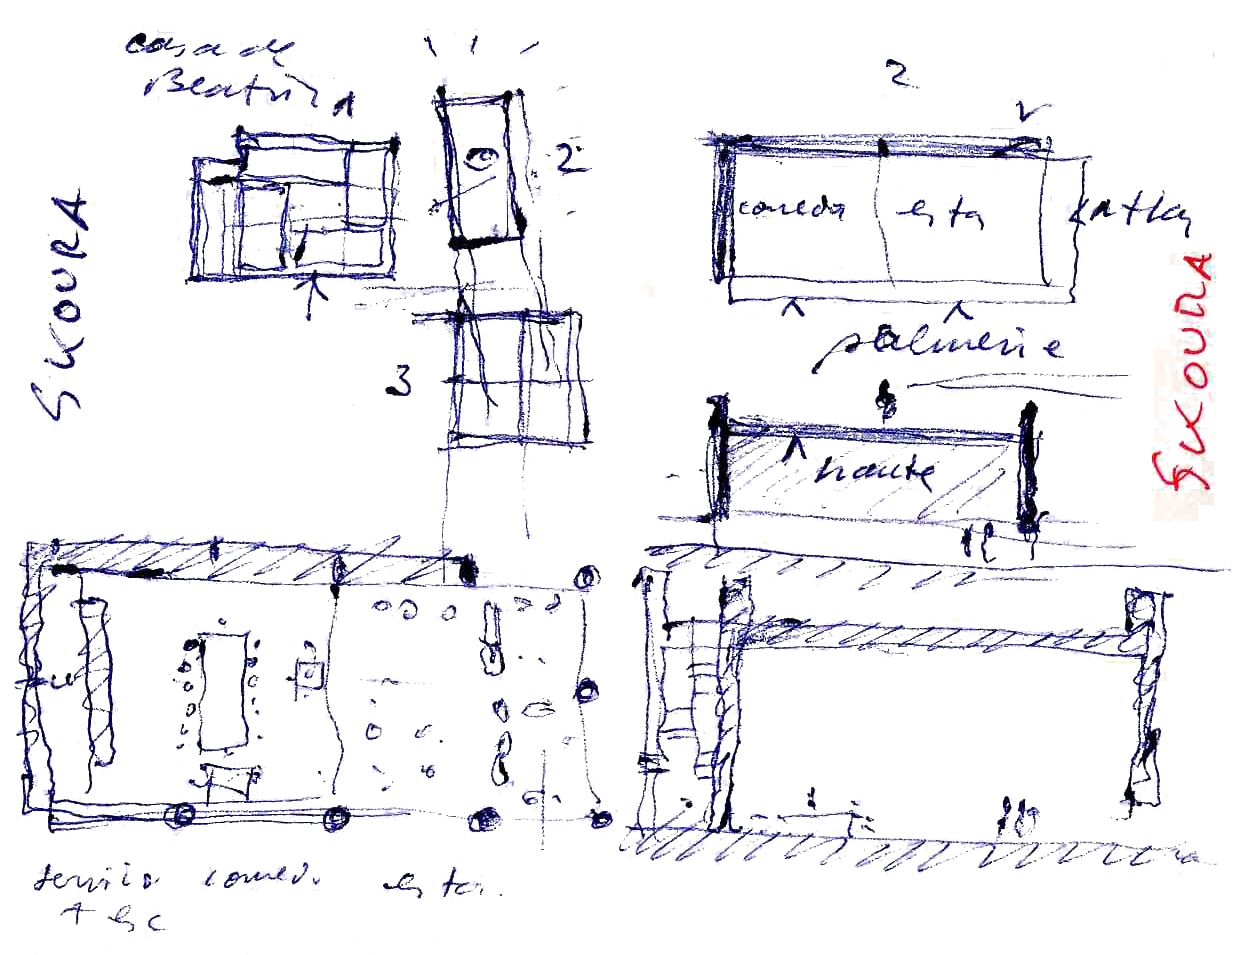 casa de
Beatriz
1
SKOURA
2
3
2
comedor
esta
palmerie
haute
SKOURA
servicio comed. estar.
+ esc